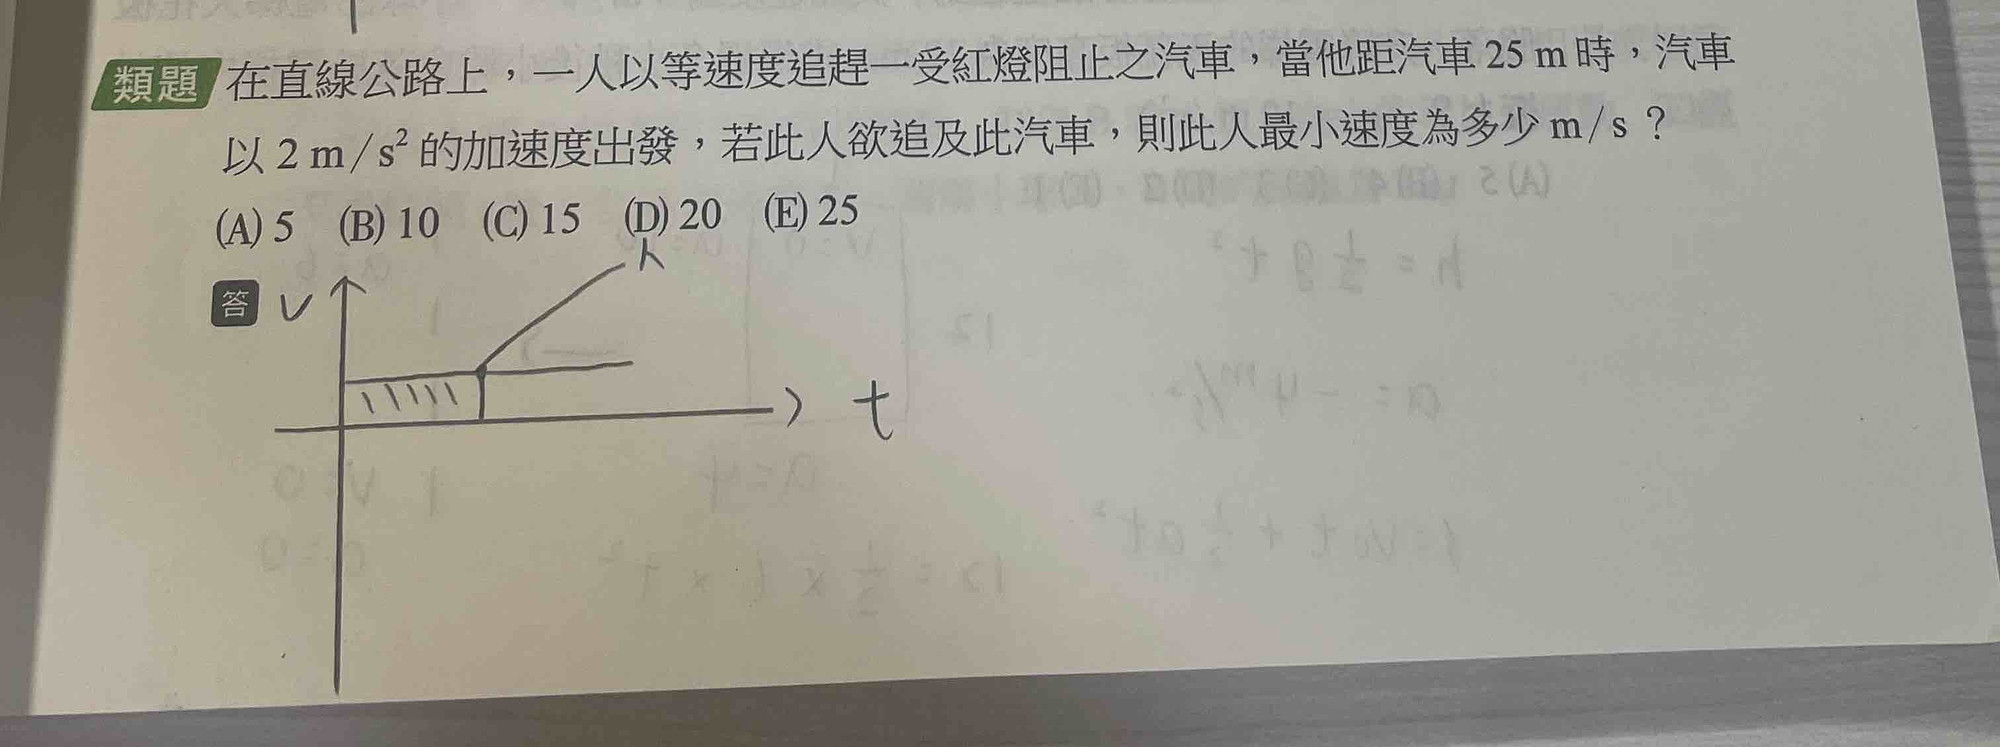 類題 在直線公路上，一人以等速度追趕一受紅燈阻止之汽車，當他距汽車 25 m 時，汽車
以 2 m/s² 的加速度出發，若此人欲追及此汽車，則此人最小速度為多少 m/s？
(A) 5 (B) 10 (C) 15 (D) 20 (E) 25
答
V
t